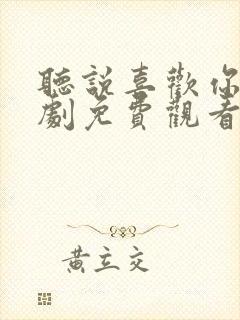 聽說喜歡你
劇免費觀看
黃立交